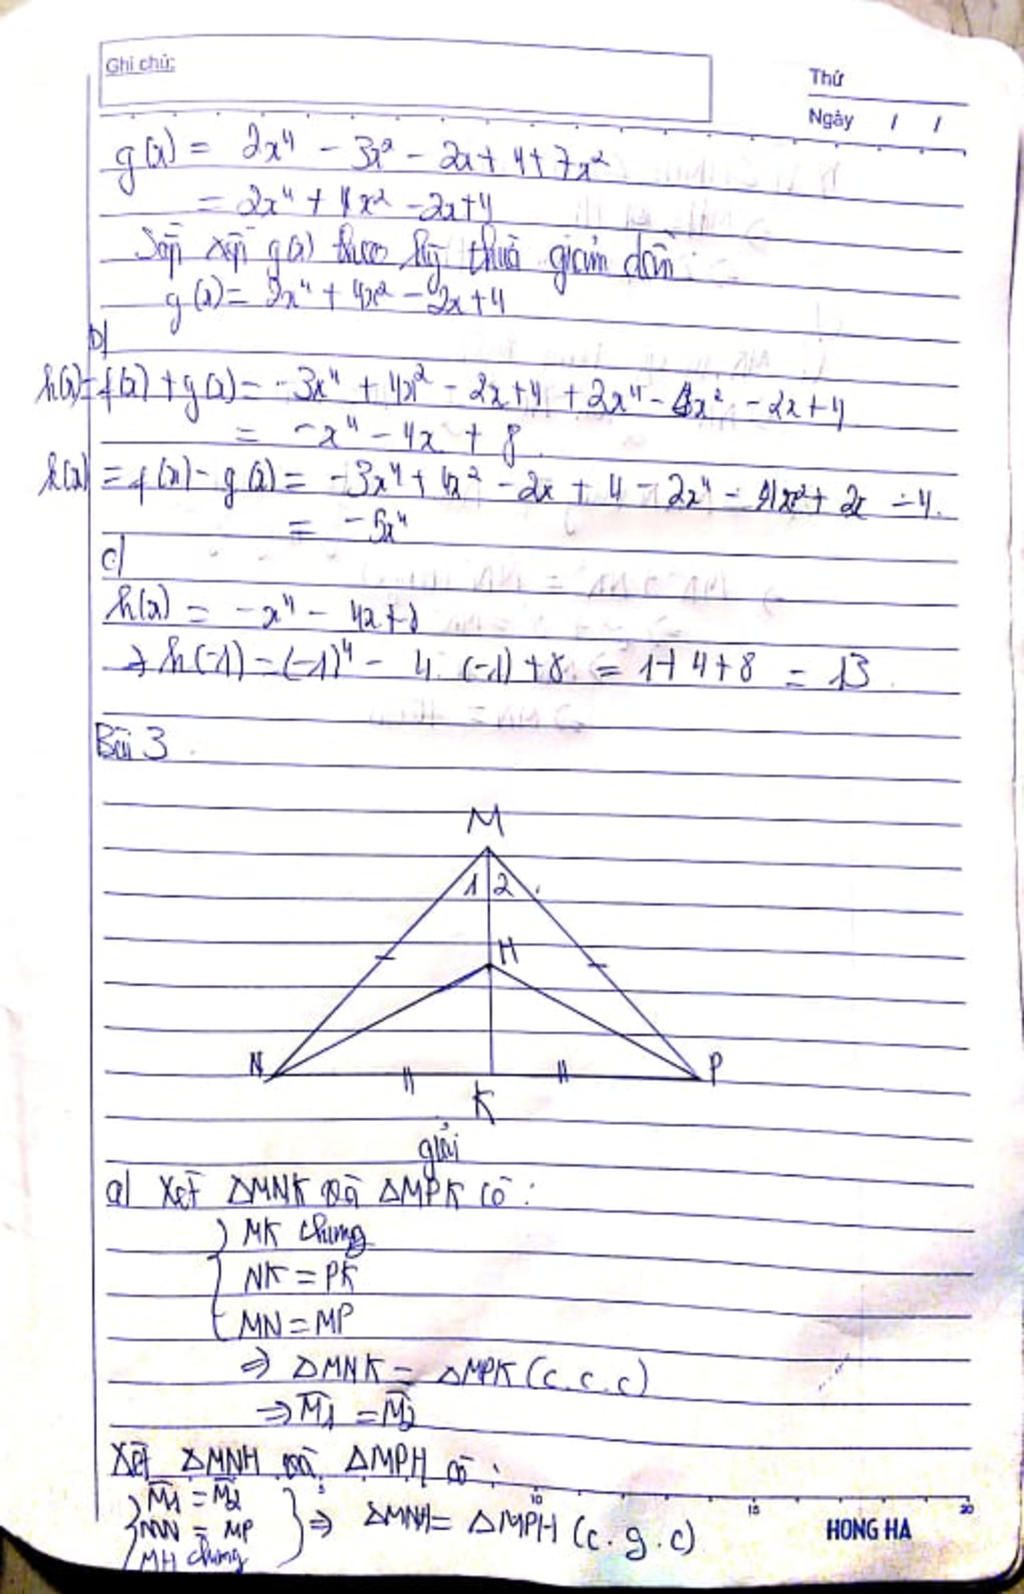 Ghi chú:
Thứ
Ngày / /
g(x) = 2x⁴ - 3x² - 2x + 4 + 7x²
= 2x⁴ + 4x² - 2x + 4
Sắp xếp g(x) theo lũy thừa giảm dần
g(x) = 2x⁴ + 4x² - 2x + 4
b)
h(x) = f(x) + g(x) = -3x⁴ + 4x² - 2x + 4 + 2x⁴ - 4x² - 2x + 4
= -x⁴ - 4x + 8
k(x) = f(x) - g(x) = -3x⁴ + 4x² - 2x + 4 - 2x⁴ - 4x² + 2x - 4.
= -5x⁴
c)
h(x) = -x⁴ - 4x + 8
⇒ h(-1) = (-1)⁴ - 4. (-1) + 8 = 1 + 4 + 8 = 13.
Bài 3.
M
1 2
H
N P
K
giải
a) Xét ΔMNK và ΔMPK có:
MK chung
NK = PK
MN = MP
⇒ ΔMNK = ΔMPK (c.c.c)
⇒ M̂1 = M̂2
Xét ΔMNH và ΔMPH có:
M̂1 = M̂2
MN = MP ⇒ ΔMNH = ΔMPH (c.g.c)
MH chung
10 15 20
HONG HA